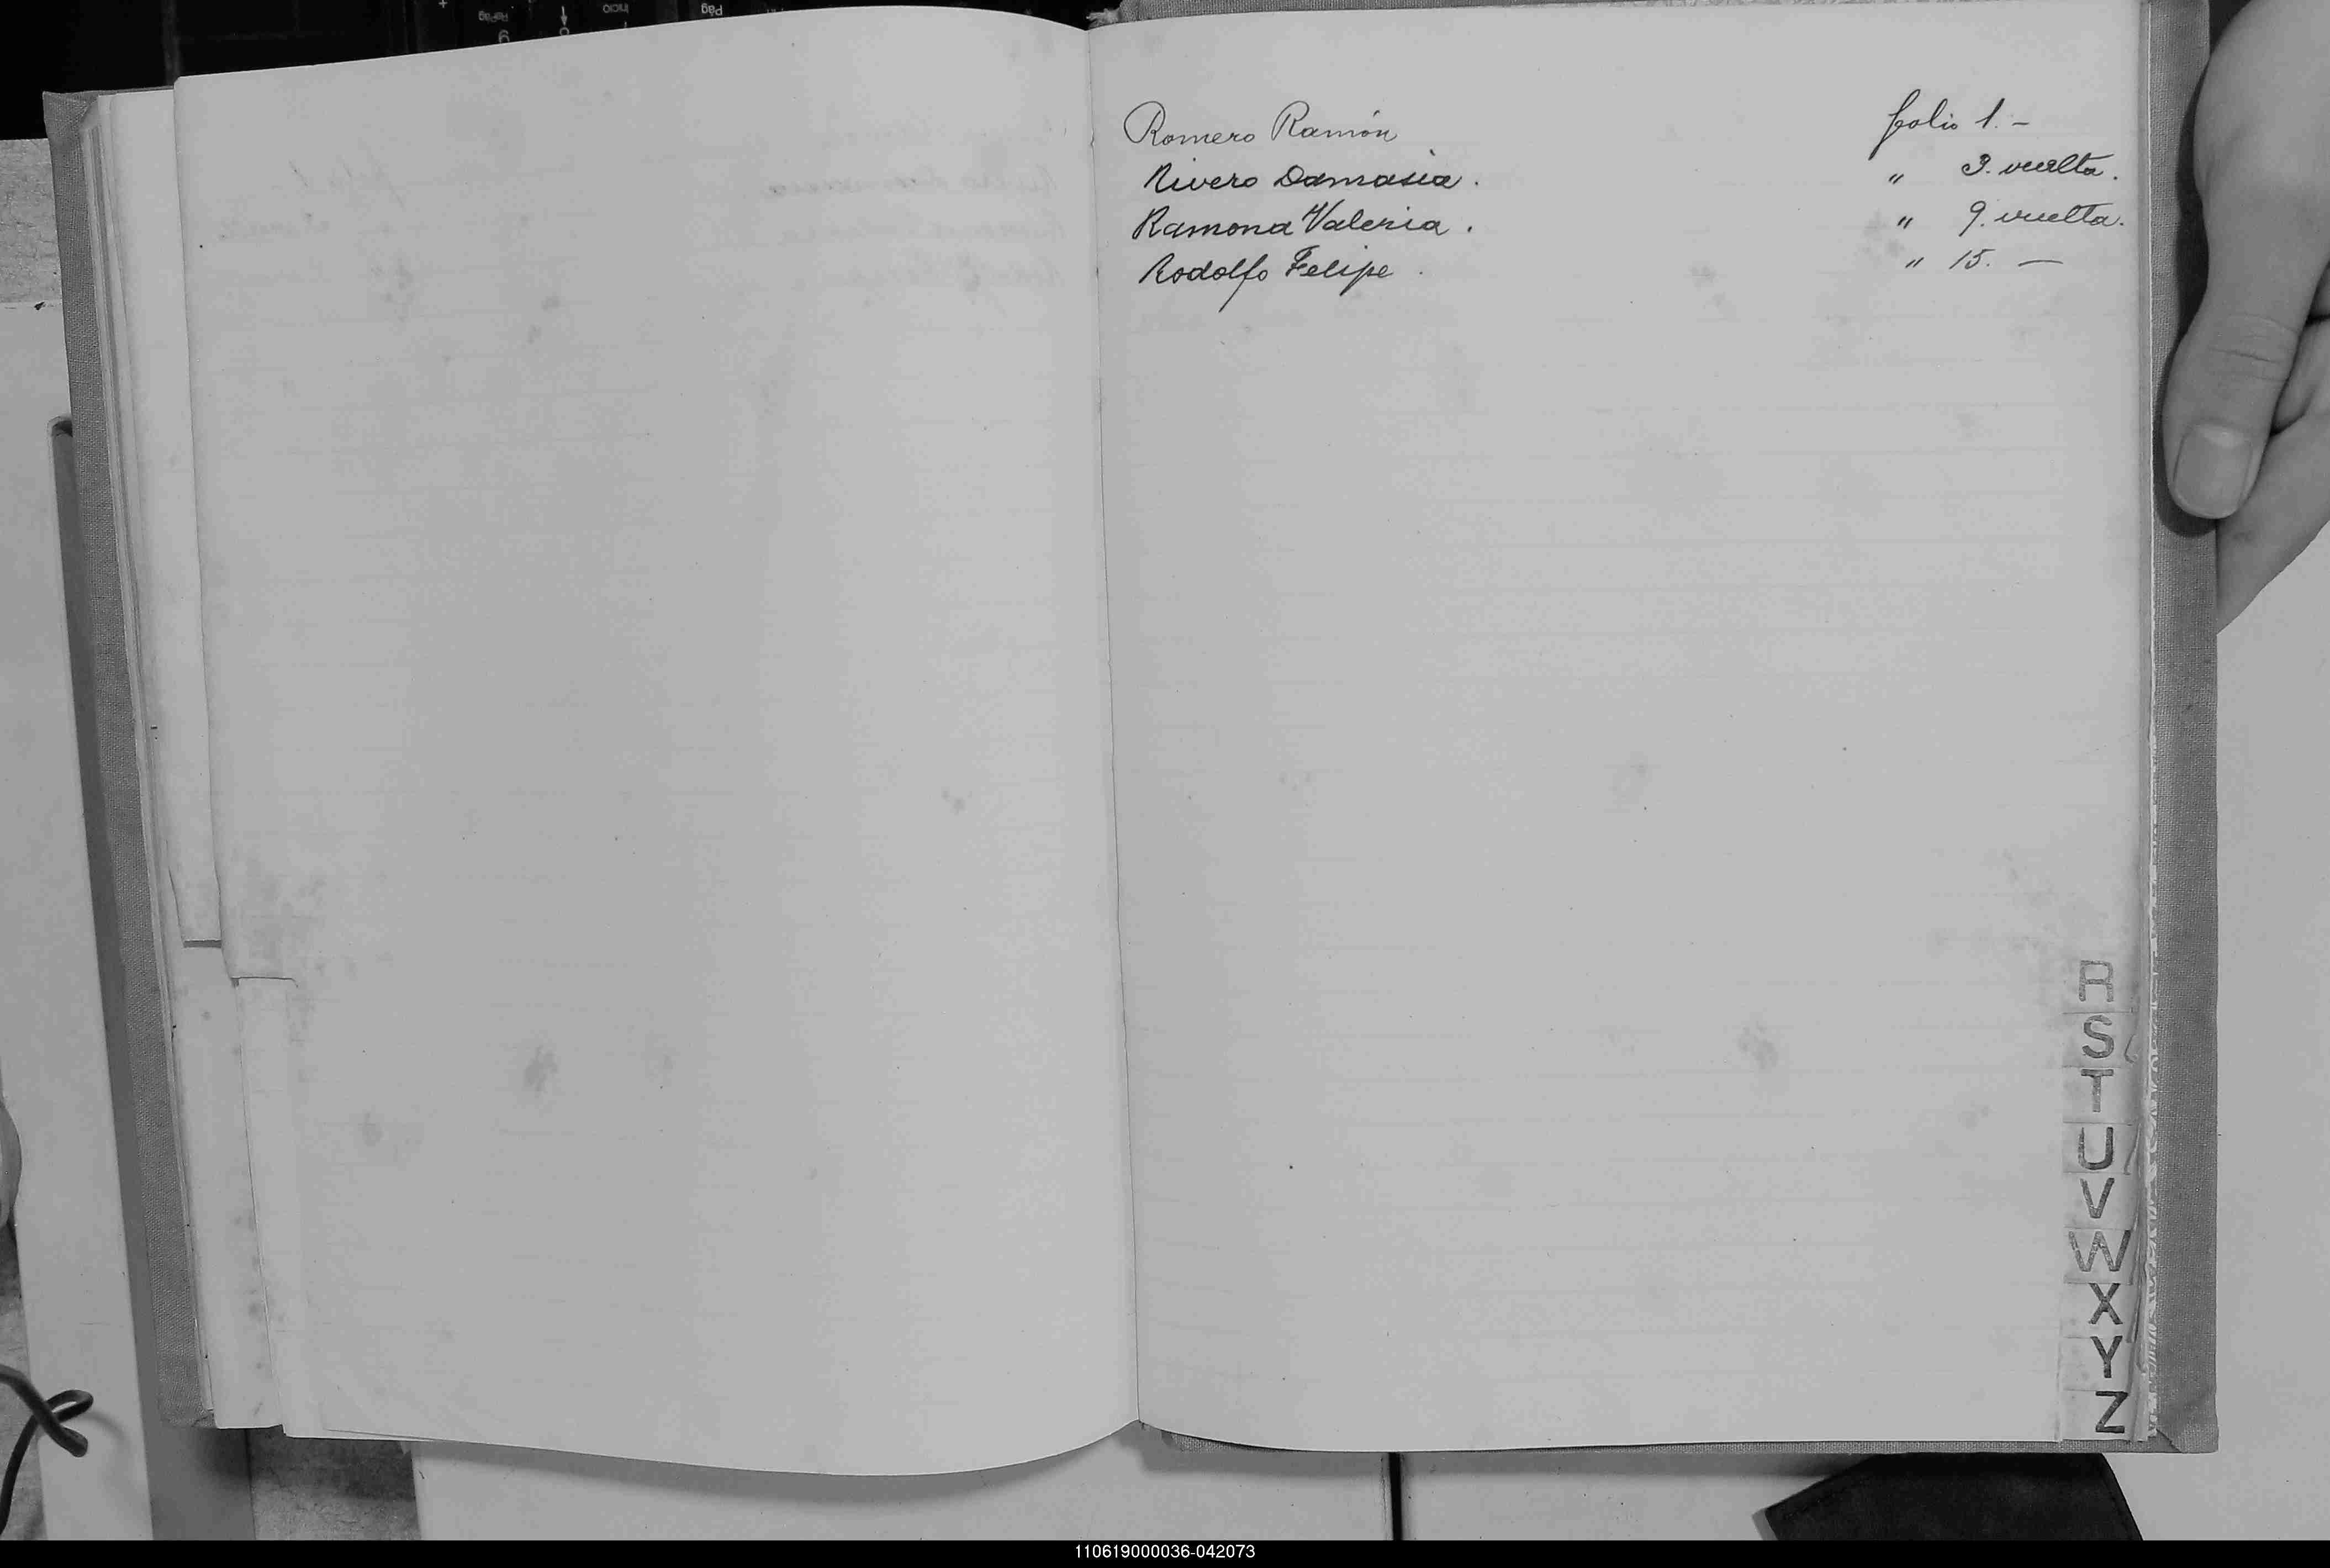 Romero Ramón folio 1. -
Rivero Damasia. " 3. vuelta.
Ramona Valeria. " 9. vuelta.
Rodolfo Felipe. " 15. —
R
S
T
U
V
W
X
Y
Z
110619000036-042073